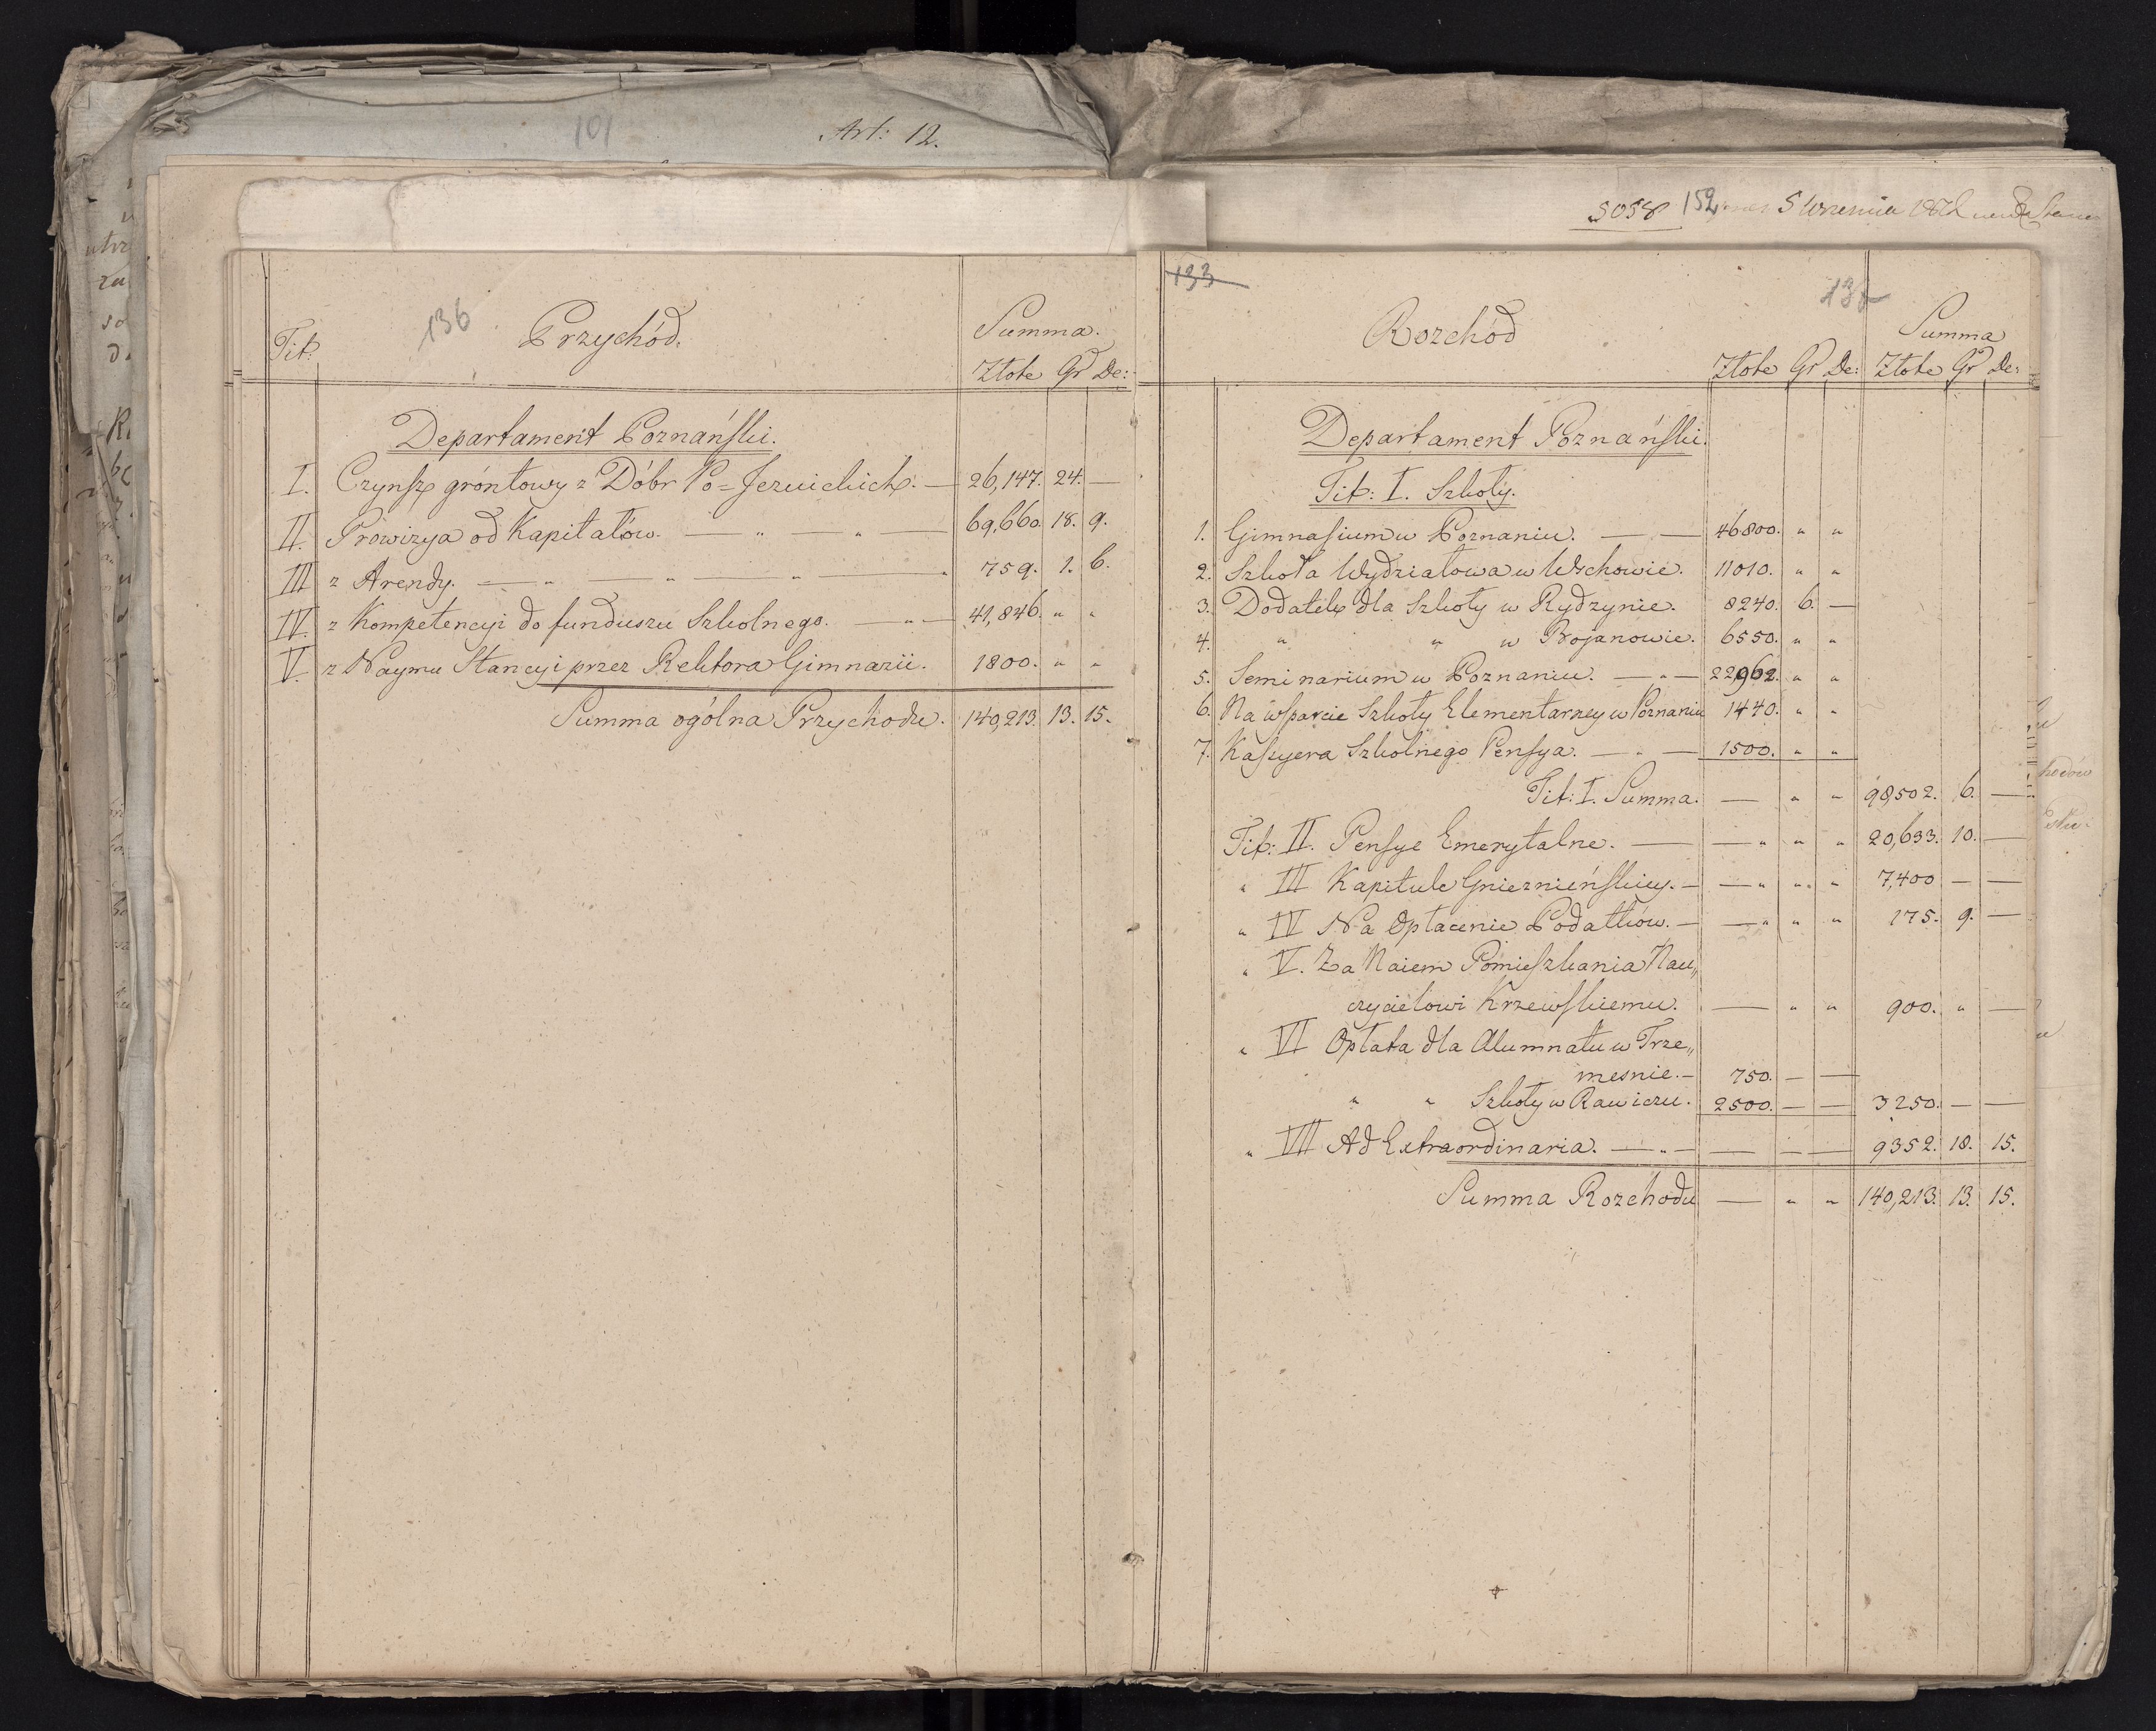 101
Art: 12.
5058 152
136
Tit: Przychód. Summa.
Złote Gr De:
Departament Poznański.
I. Czynsz gróntowy z Dóbr Po=Jezuickich. — 26,147. 24. —
II. Prowizya od Kapitałów. — „ — „ — 69,660. 18. 9.
III z Arendy. — „ — „ — „ — „ 759. 1. 6.
IV. z Kompetencyi do funduszu Szkolnego. — „ — 41,846. „ „
V. z Naymu Stancyi przez Rektora Gimnazii. 1800. „ „
Summa ogólna Przychodu. 140,213. 13. 15.
133
Rozchód Summa
Złote Gr De: Złote Gr De:
Departament Poznański.
Tit: I. Szkoły.
1. Gimnasium w Poznaniu. — — 46800. „ „
2. Szkoła Wydziałowa w Wschowie. 11010. „ „
3. Dodatek dla Szkoły w Rydzynie. 8240. 6. —
4. „ „ w Bojanowie. 6550. „ „
5. Seminarium w Poznaniu. — „ — 22,962. „ „
6. Na wsparcie Szkoły Elementarney w Poznaniu 1440. „ „
7. Kassyera Szkolnego Pensya. — „ — 1500. „ „
Tit: I. Summa. — „ „ 98,502. 6. —
Tit: II. Pensye Emerytalne. — — „ „ „ 20,633. 10. —
„ III Kapitule Gnieznieńskiey. — — „ „ „ 7,400 — —
„ IV Na Opłacenie Podatków. — — „ „ „ 175. 9. —
„ V. Za Naiem Pomieszkania Nau„
czycielowi Krzewskiemu. — „ „ 900. „ —
„ VI Opłata dla Alumnatu w Trze„
mesnie. — 750. — —
„ „ Szkoły w Rawiczu. 2500. — — 3250. — —
„ VII Ad Extraordinaria. — „ — — — — 9352. 18. 15.
Summa Rozchodu — „ „ 140,213. 13. 15.